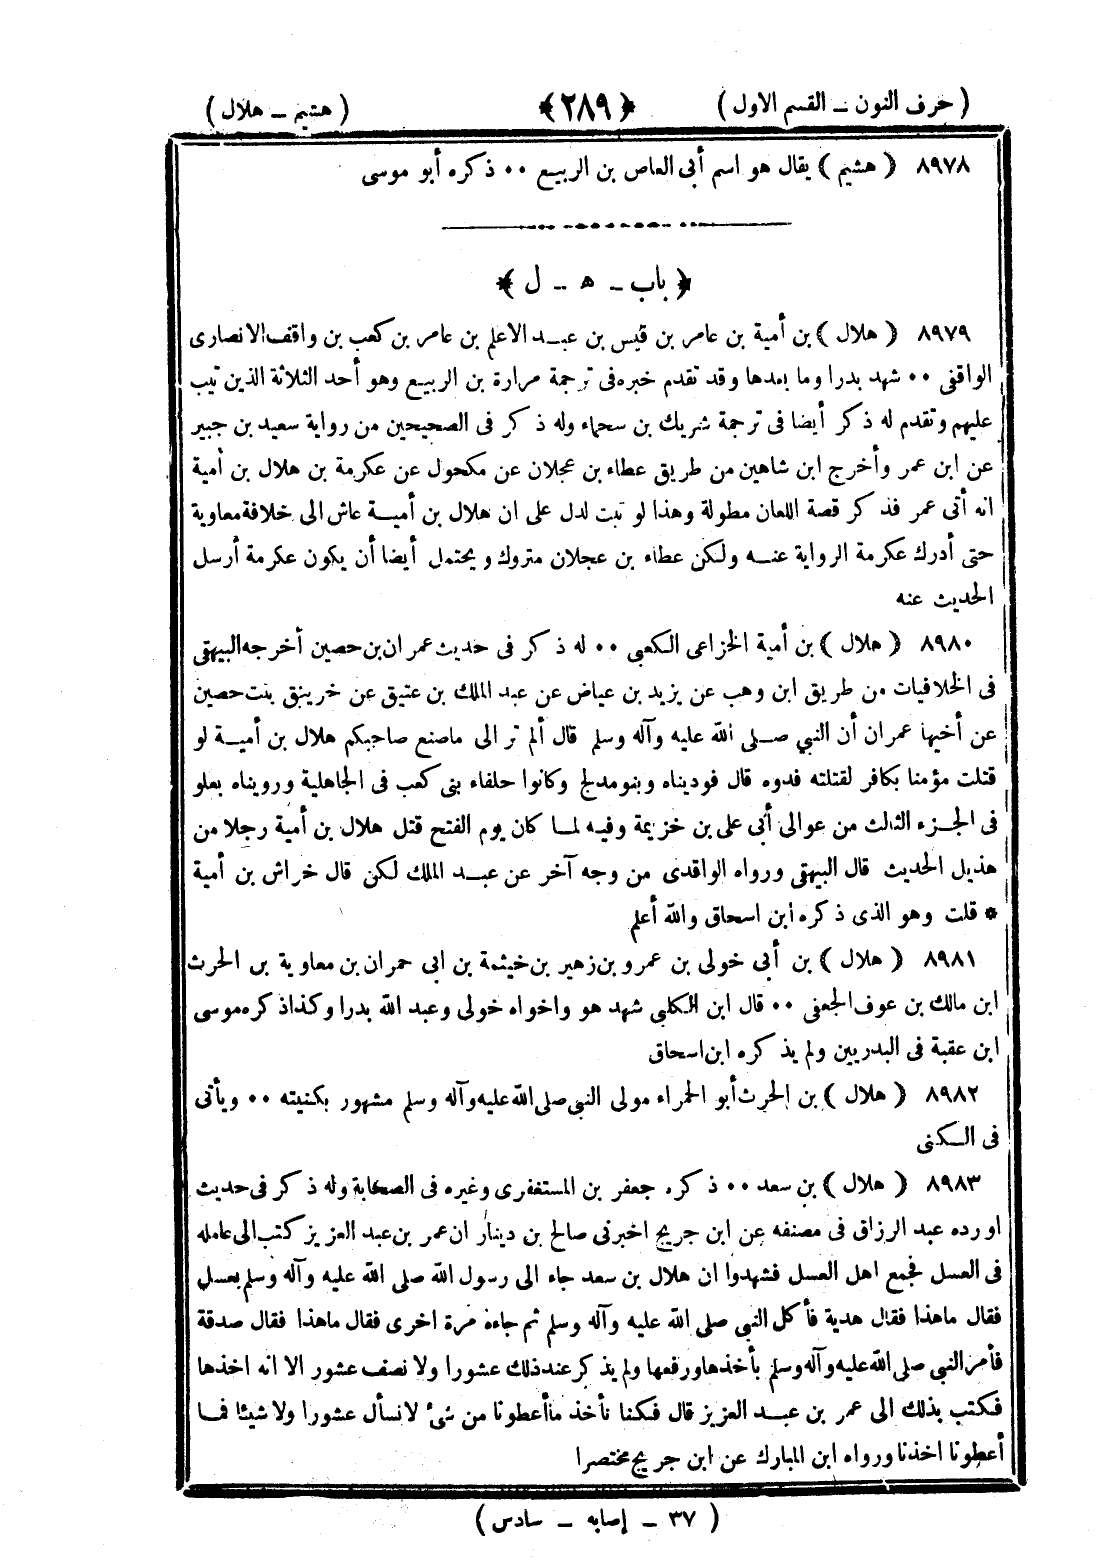 ( حرف النون ـ القسم الاول ) ﴿ ٢٨٩ ﴾ ( هشيم ـ هلال )
٨٩٧٨ ( هشيم ) يقال هو اسم أبى العاص بن الربيع ٠٠ ذكره أبو موسى
﴿ باب ـ ه ـ ل ﴾
٨٩٧٩ ( هلال ) بن أمية بن عامر بن قيس بن عبد الاعلم بن عامر بن كعب بن واقف الانصارى
الواقفى ٠٠ شهد بدرا وما بعدها وقد تقدم خبره فى ترجمة مرارة بن الربيع وهو أحد الثلاثة الذين تيب
عليهم وتقدم له ذكر أيضا فى ترجمة شريك بن سحماء وله ذكر فى الصحيحين من رواية سعيد بن جبير
عن ابن عمر وأخرج ابن شاهين من طريق عطاء بن عجلان عن مكحول عن عكرمة بن هلال بن أمية
انه أتى عمر فذكر قصة اللعان مطولة وهذا لو ثبت لدل على ان هلال بن أمية عاش الى خلافة معاوية
حتى أدرك عكرمة الرواية عنه ولكن عطاء بن عجلان متروك ويحتمل أيضا أن يكون عكرمة أرسل
الحديث عنه
٨٩٨٠ ( هلال ) بن أمية الخزاعى الكعبى ٠٠ له ذكر فى حديث عمران بن حصين أخرجه البيهقى
فى الخلافيات من طريق ابن وهب عن يزيد بن عياض عن عبد الملك بن عتيق عن خرينق بنت حصين
عن أخيها عمران أن النبي صلى الله عليه وآله وسلم قال ألم تر الى ماصنع صاحبكم هلال بن أمية لو
قتلت مؤمنا بكافر لقتلته فدوه قال فوديناه وبنو مدلج وكانوا حلفاء بنى كعب فى الجاهلية ورويناه بعلو
فى الجزء الثالث من عوالى أبى على بن خزيمة وفيه لما كان يوم الفتح قتل هلال بن أمية رجلا من
هذيل الحديث قال البيهقى ورواه الواقدى من وجه آخر عن عبد الملك لكن قال خراش بن أمية
* قلت وهو الذى ذكره ابن اسحاق والله أعلم
٨٩٨١ ( هلال ) بن أبى خولى بن عمرو بن زهير بن خيثمة بن ابى حمران بن معاوية بن الحرث
ابن مالك بن عوف الجعفى ٠٠ قال ابن الكلبى شهد هو واخواه خولى وعبد الله بدرا وكذا ذكره موسى
ابن عقبة فى البدريين ولم يذكره ابن اسحاق
٨٩٨٢ ( هلال ) بن الحرث أبو الحمراء مولى النبي صلى الله عليه وآله وسلم مشهور بكنيته ٠٠ ويأتى
فى الكنى
٨٩٨٣ ( هلال ) بن سعد ٠٠ ذكره جعفر بن المستغفرى وغيره فى الصحابة وله ذكر فى حديث
اورده عبد الرزاق فى مصنفه عن ابن جريج اخبرنى صالح بن دينار ان عمر بن عبد العزيز كتب الى عامله
فى العسل فجمع اهل العسل فشهدوا ان هلال بن سعد جاء الى رسول الله صلى الله عليه وآله وسلم بعسل
فقال ماهذا فقال هدية فأكل النبي صلى الله عليه وآله وسلم ثم جاءه مرة اخرى فقال ماهذا فقال صدقة
فأمر النبي صلى الله عليه وآله وسلم بأخذها ورفعها ولم يذكر عند ذلك عشورا ولا نصف عشور الا انه اخذها
فكتب بذلك الى عمر بن عبد العزيز قال فكنا نأخذ ماأعطونا من شئ لانسأل عشورا ولا شيئا فما
أعطونا اخذنا ورواه ابن المبارك عن ابن جريج مختصرا
( ٣٧ ـ إصابه ـ سادس )